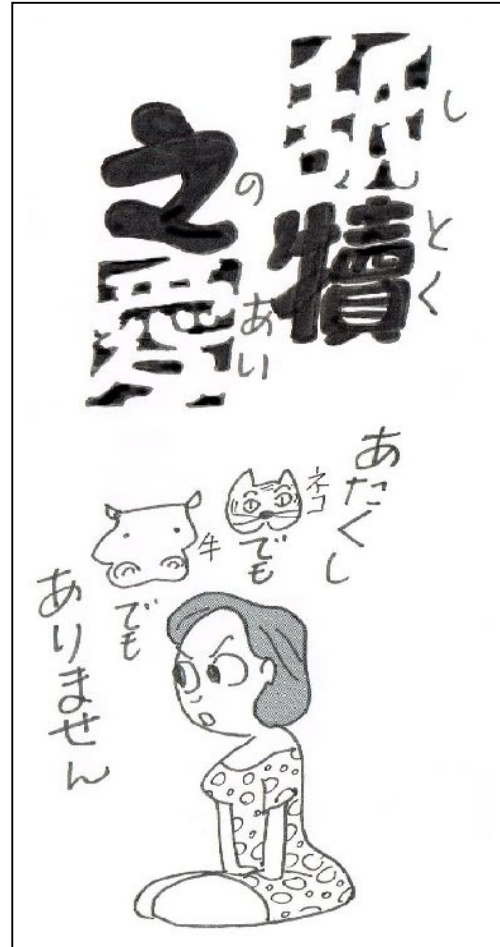 舐犢
しとく
之愛
のあい
あたくし
ネコ
でも
牛
でも
ありません